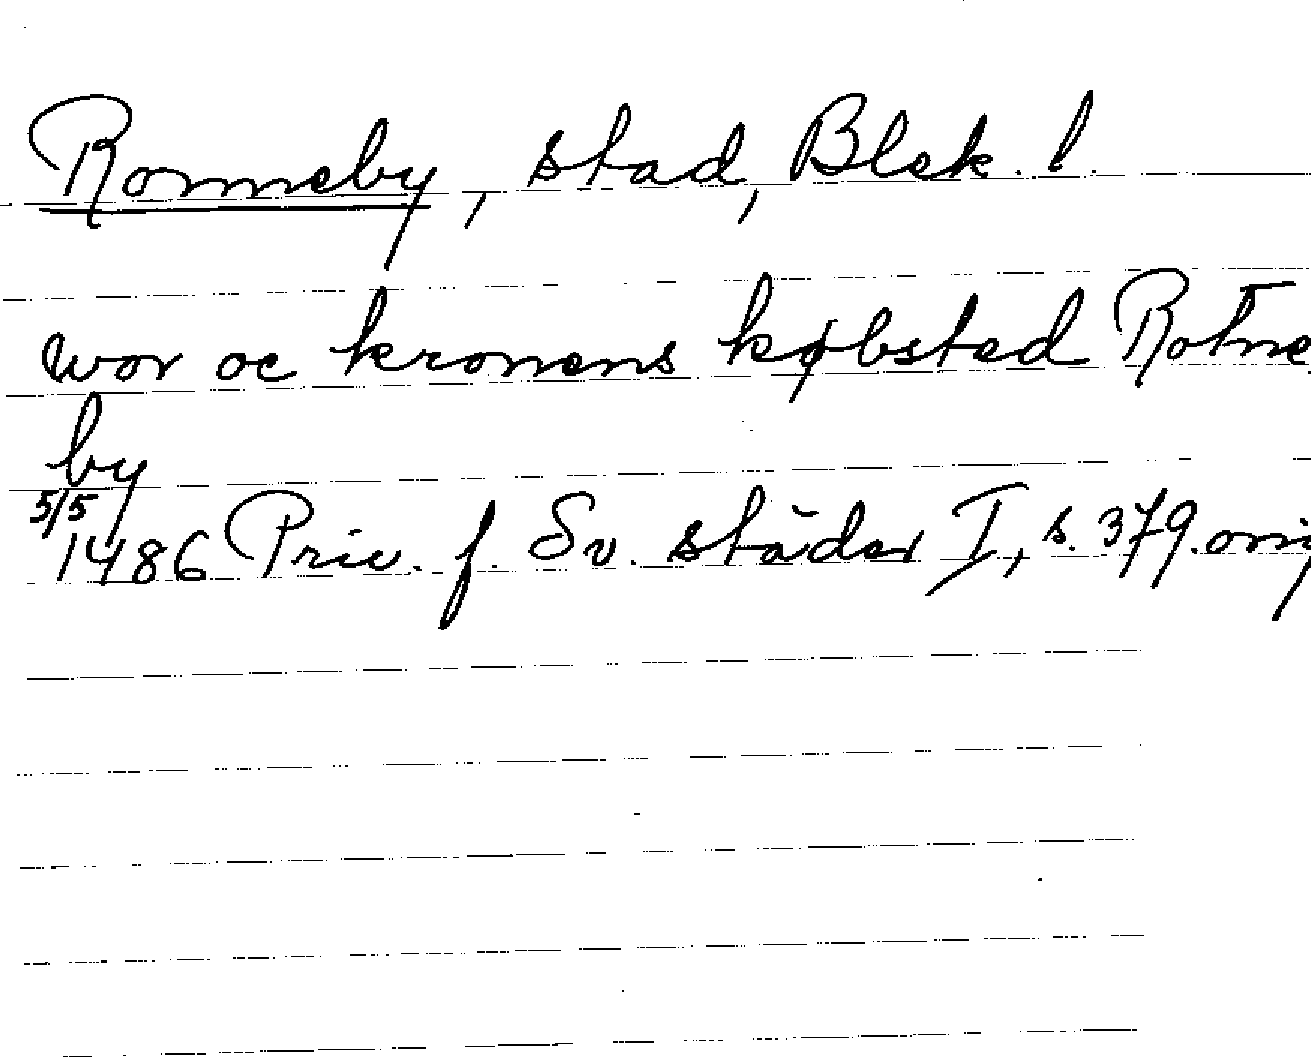 Ronneby, stad, Blek. l.
wor oc kronens købsted Rotne
by
5/5
1486 Priv. f. Sv. städer I, s. 379. orig